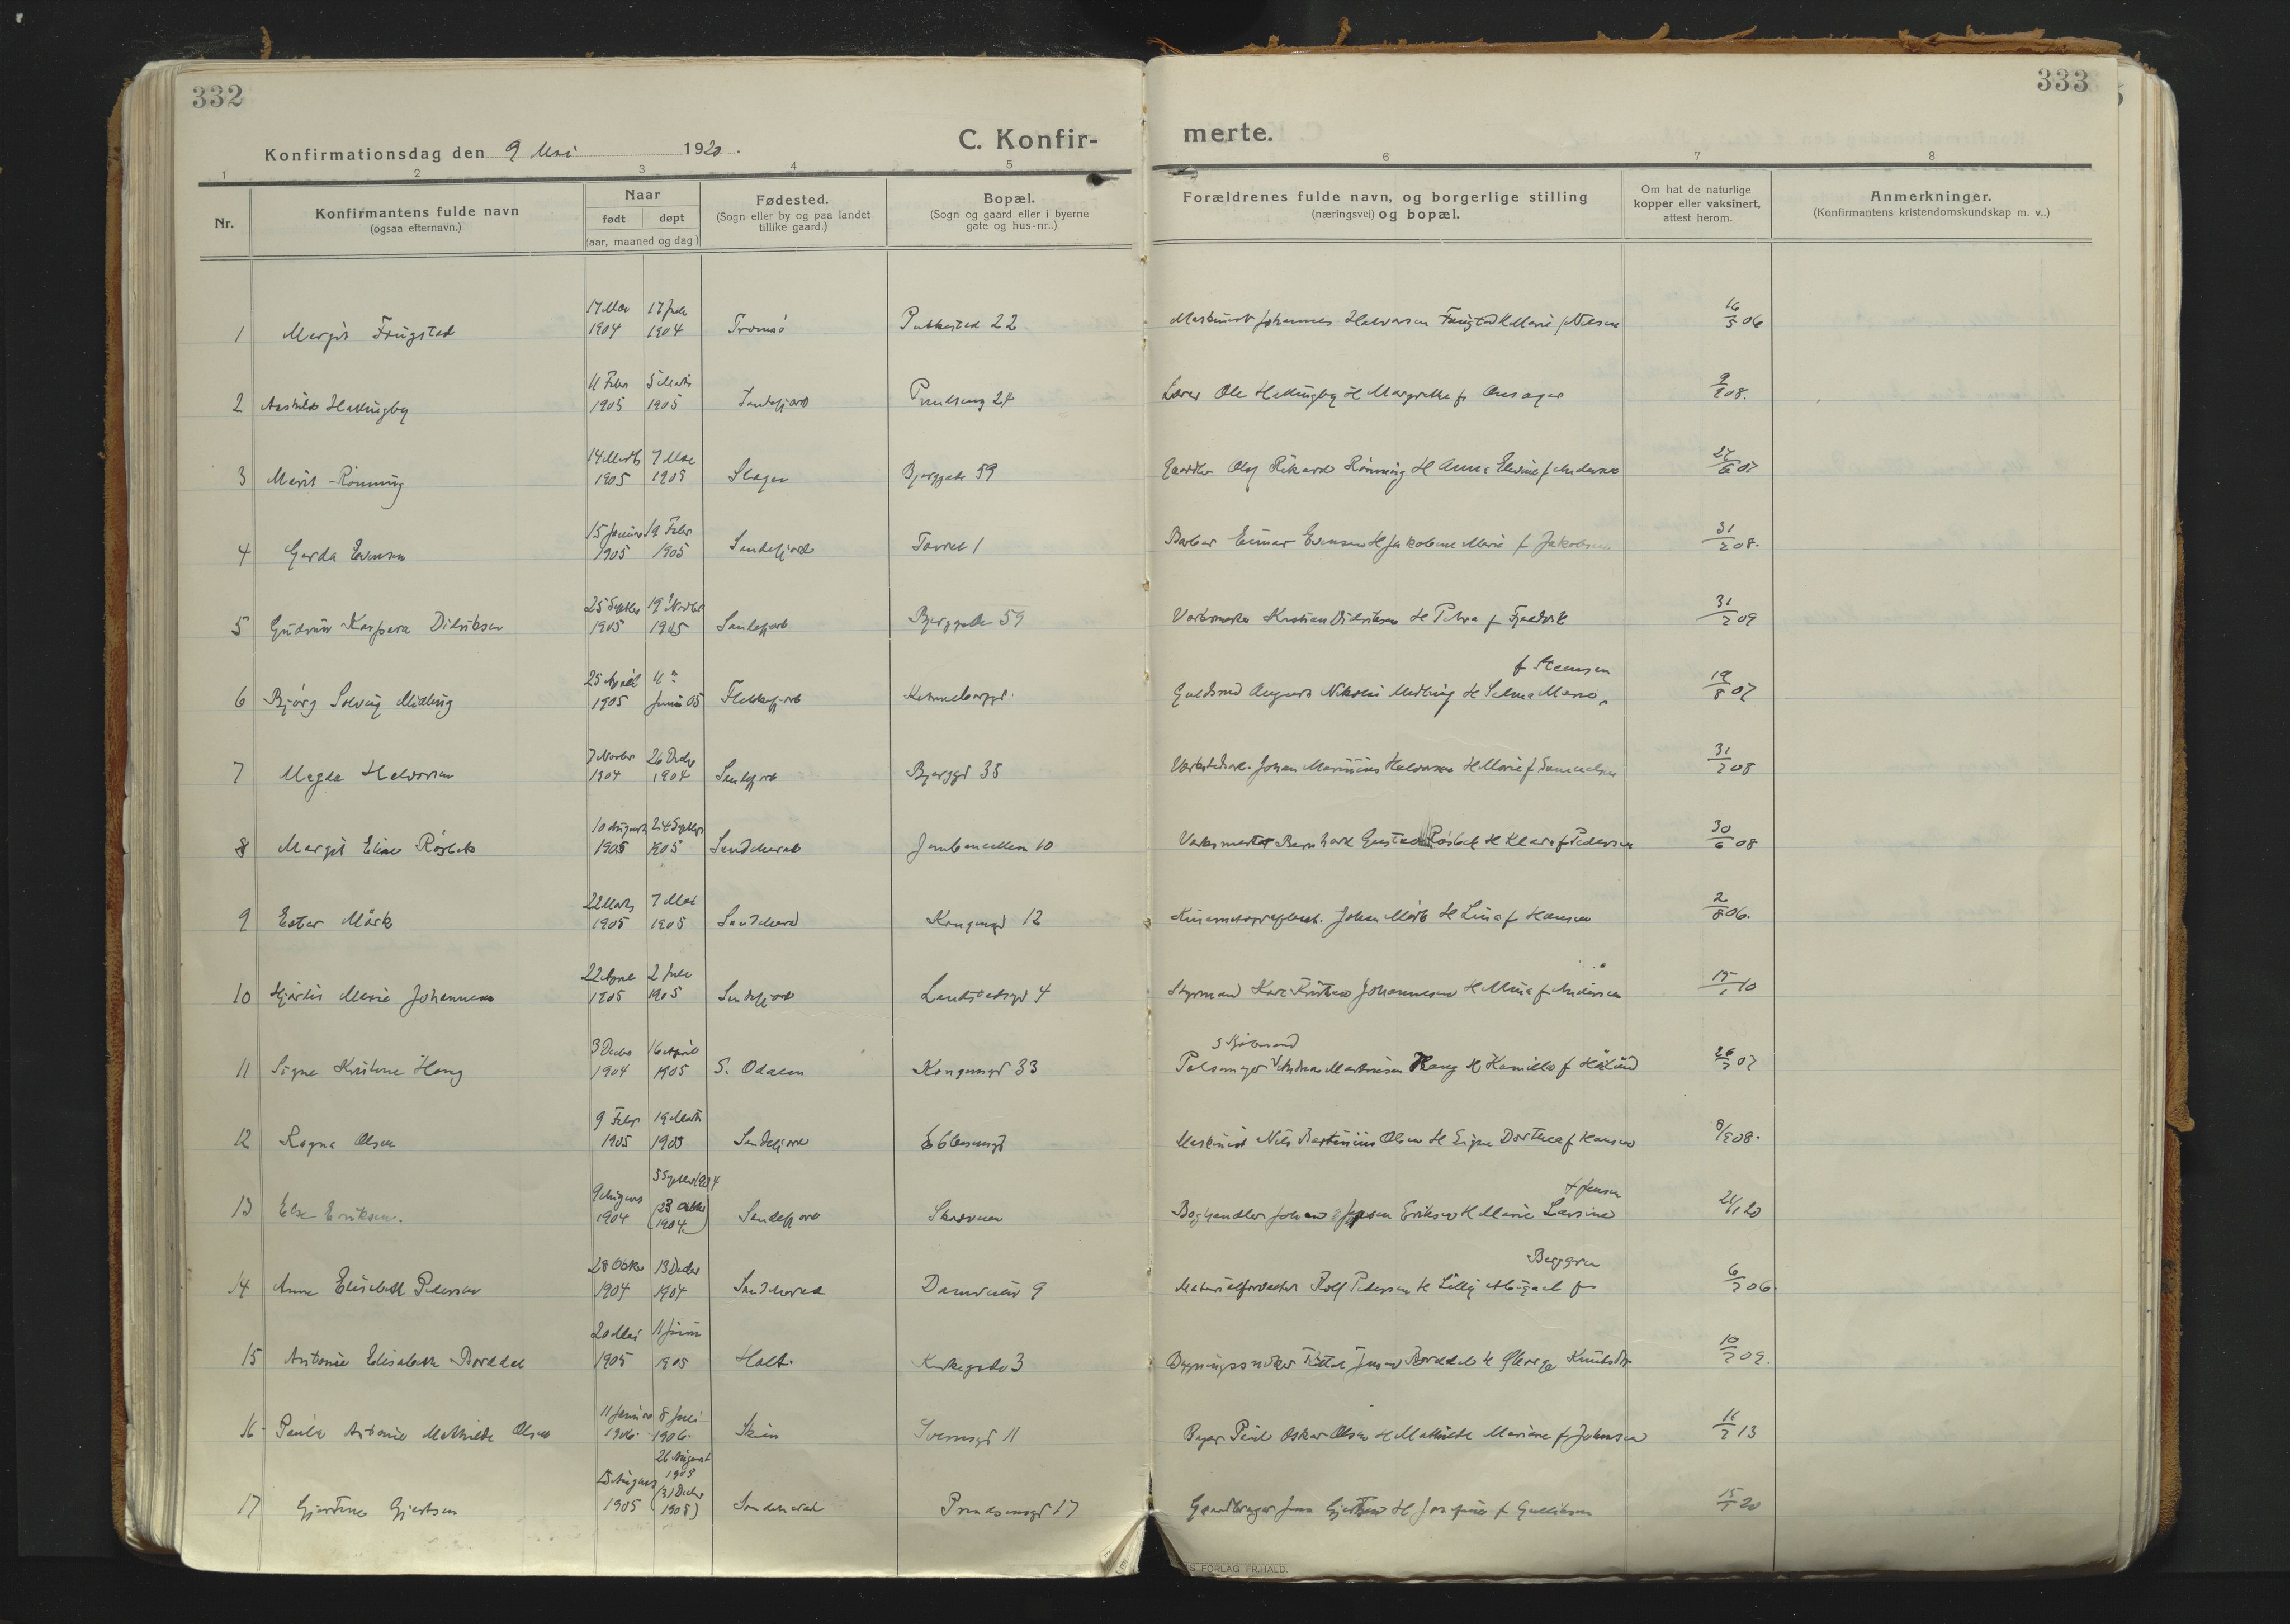 332
333
C. Konfir-
merte.
Konfirmationsdag den 9 Mai 1920.
1 2 3 4 5 6 7 8
Nr.
Konfirmantens fulde navn
(ogsaa efternavn.)
Naar
født døpt
(aar, maaned og dag)
Fødested.
(Sogn eller by og paa landet
tillike gaard.)
Bopæl.
(Sogn og gaard eller i byerne
gate og hus-nr..)
Forældrenes fulde navn, og borgerlige stilling
(næringsvei) og bopæl.
Om hat de naturlige
kopper eller vaksinert,
attest herom.
Anmerkninger.
(Konfirmantens kristendomskundskap m. v..)
17 Mai 17 Juli
1 Margit Frugstad 1904 1904 Tromsø 22 Maskinist Johannes Halvorsen Frugstad H Marie f Nilsen 16/5 06
11 Febr 5 Marts
2 Aashild Hallingby 1905 1905 Sandefjord 24 Lærer Ole Hallingby H Margrethe f Aasager 08.
14 Marts 7 Mai
3 Marit Rönning 1905 1905 Slagen Bjerggate 59 Olaf Rikard Rönning H Anna f Andersen 07
15 Januar 19 Febr
4 Gerda Evensen 1905 1905 Sandefjord Torvet 1 Barber Einar Evensen H Jakobine Marie f Jakobsen 31/2 08.
25 Septbr 19 Novbr
5 Gudrun Kaspara Didriksen 1905 1905 Sandefjord Bjerggate 59 Verksmester Kristian Didriksen H Petra f 31/2 09
25 April 11
6 Bjørg Solveig Midling 1905 Juni 05 Flekkefjord Guldsmed August Nikolai Midling H Selma f Steensen 19/8 07
7 Novbr 26 Decbr
7 Magda Halvorsen 1904 1904 Sandefjord Bjerggt 35 Johan Marinius Halvorsen H Marie f Samuelsen 31/2 08
10 August 24 Septbr
8 Margit Eline Røsbek 1905 1905 Sandeherred Jernbanealleen 10 Verksmester Bernhard Gustav Røsbek H Klara f Pedersen 30/6 08
22 Marts 7 Mai
9 Ester Mørk 1905 1905 Sandeherred Kongensgt 12 Johan Mørk H Lina f Hansen 2/8 06.
22 April 2 Juli
10 Hjørdis Marie Johannesen 1905 1905 Sandefjord Landstadsgt 4 Styrmand Karl Kristian Johannesen H Mina f Andersen 10
3 Decbr 16 April
11 Signe Kristine Haug 1904 1905 S. Odalen Kongensgt 33 Pølsemager Andreas Martinsen Haug H Kamilla f 26/3 07
9 Febr 19 Marts
12 Ragna Olsen 1905 1905 Sandefjord Maskinist Nils Bertinius Olsen H Signe Dorthea f Hansen 08.
9 August 5 Septbr 1904
13 Else Eriksen. 1904 (23 Oktbr 1904) Sandefjord Skraveien Boghandler Johan Eriksen H Marie Larsine f Jensen 20
28 Oktbr 13 Decbr
14 Anne Elisabeth Pedersen 1904 1904 Sandeherred Damveien 9 Materialforvalter Rolf Pedersen H Lilly Abigael f Berggren 6/2 06.
20 Mai 11 Juni
15 Antonie Elisabeth Borddal 1905 1905 Holt. Kirkegate 3 Bygningssnekker Jensen Borddal H Knutsdtr 10/2 09.
11 Januar 8 Juli
16 Paula Antonie Mathilde Olsen 1906. 1906. Skien 11 Oskar Olsen H Mathilde Mariane f Johnsen 16/2 13
15 August 26 August 1905
17 Gjertine Gjertsen 1905 (31 Decbr 1905) Sandeherred Prinsensgt 17 Gaardbruger Gjertsen H Josefine f Gulliksen 15/1 20
S FORLAG FR.HALD.